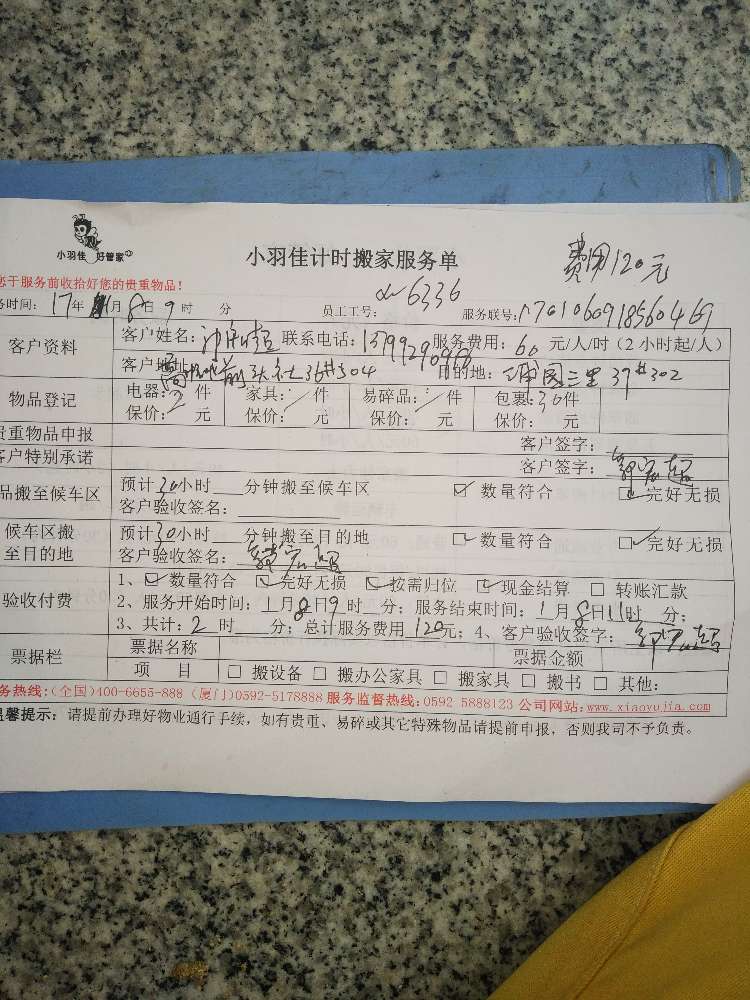 小羽佳 好管家
小羽佳计时搬家服务单
费用120元
您于服务前收拾好您的贵重物品!
务时间: 17年 1月8日9时 分 员工工号: 6336 服务联号:
客户资料 客户姓名: 联系电话: 服务费用: 60 元/人/时 (2小时起/人)
客户地址: 36#504 目的地: 三里37#302
物品登记 电器: 2 件 家具: / 件 易碎品: / 件 包裹: 30件
保价: 元 保价: 元 保价: 元 保价: 元
贵重物品申报 客户签字:
客户特别承诺 客户签字:
品搬至候车区 预计30小时 分钟搬至候车区 ☑ 数量符合 ☑ 完好无损
客户验收签名:
候车区搬至目的地 预计30小时 分钟搬至目的地 ☑ 数量符合 ☑ 完好无损
客户验收签名:
验收付费 1、☑ 数量符合 ☑ 完好无损 ☑ 按需归位 ☑ 现金结算 □ 转账汇款
2、服务开始时间: 1月8日9时 分; 服务结束时间: 1月8日11时 分;
3、共计: 2 时 分; 总计服务费用 120元; 4、客户验收签字:
票据栏 票据名称 票据金额
项 目 □ 搬设备 □ 搬办公家具 □ 搬家具 □ 搬书 □ 其他:
务热线: (全国)400-6655-888 (厦门)0592-5178888 服务监督热线: 0592 5888123 公司网站: www.xiaoyujia.com
温馨提示: 请提前办理好物业通行手续, 如有贵重、易碎或其它特殊物品请提前申报, 否则我司不予负责。